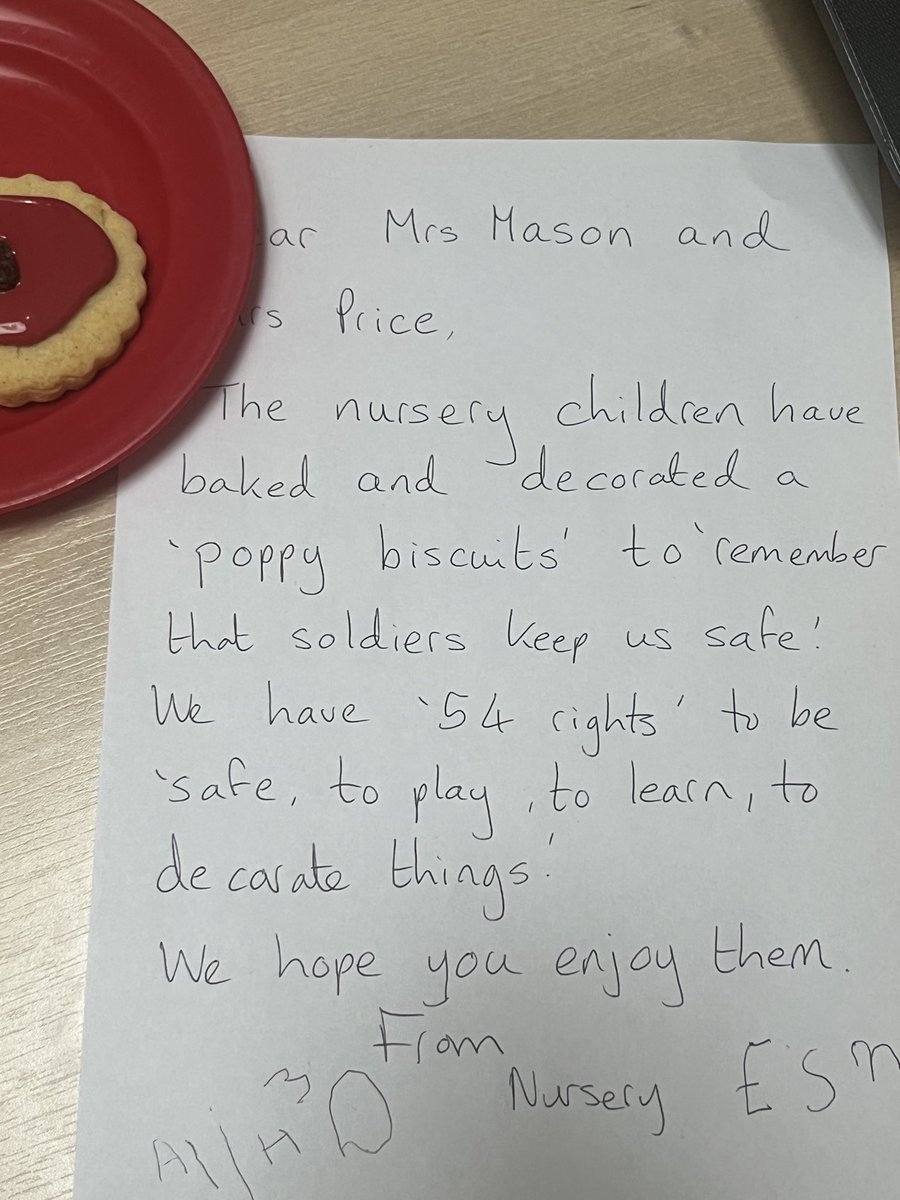 ar Mrs Mason and
rs Price,
The nursery children have
baked and decorated a
'poppy biscuits' to 'remember
that soldiers keep us safe!'
We have '54 rights' to be
'safe, to play, to learn, to
decarate things.'
We hope you enjoy them.
From
Nursery